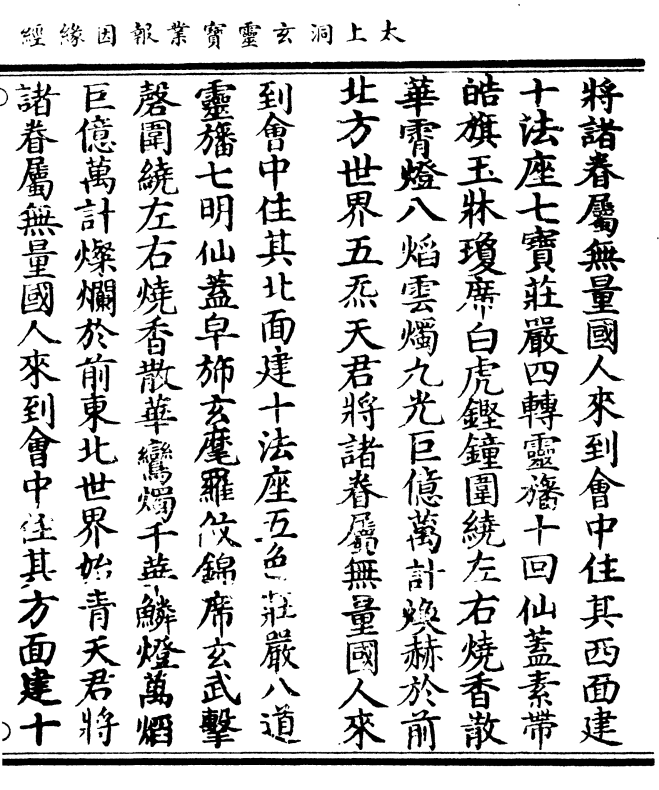 太上洞玄靈寶業報因緣經
將諸眷屬無量國人來到會中住其西面建
十法座七寶莊嚴四轉靈旛十回仙蓋素帶
皓旗玉牀瓊席白虎鏗鐘圍繞左右燒香散
華霄燈八焰雲燭九光巨億萬計煥赫於前
北方世界五炁天君將諸眷屬無量國人來
到會中住其北面建十法座五色莊嚴八道
靈旛七明仙蓋皁斾玄麾羅紋錦席玄武擊
磬圍繞左右燒香散華鸞燭千華鱗燈萬焰
巨億萬計燦爛於前東北世界始青天君將
諸眷屬無量國人來到會中住其方面建十